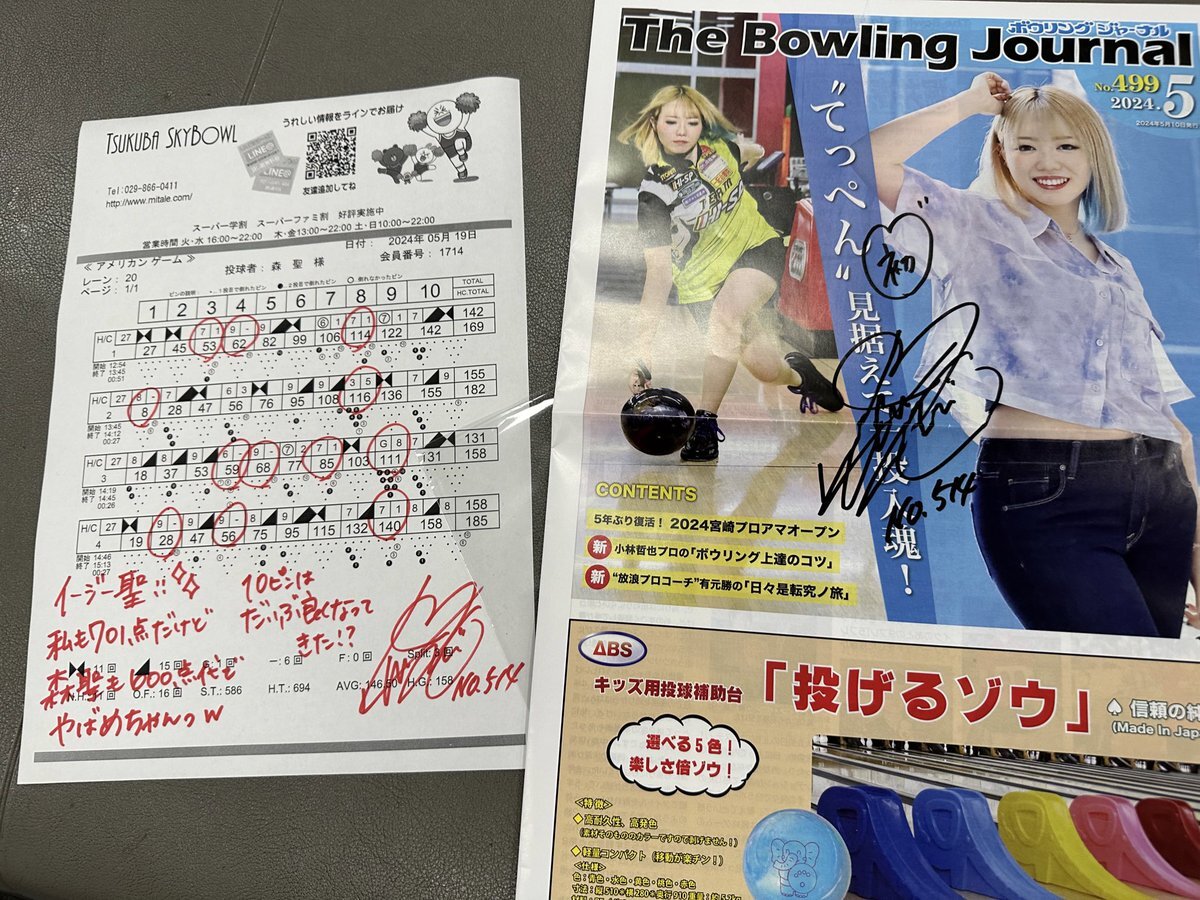 TSUKUBA SKYBOWL
うれしい情報をラインでお届け
LINE@
友達追加してね
Tel:029-866-0411
http://www.mitale.com/
スーパー学割 スーパーファミ割 好評実施中
営業時間 火・水 16:00～22:00 木・金13:00～22:00 土・日10:00～22:00
日付: 2024年 05月 19日
≪ アメリカン ゲーム ≫
投球者: 森 聖 様
会員番号: 1714
レーン: 20
ページ: 1/1
1 2 3 4 5 6 7 8 9 10 TOTAL
HC.TOTAL
H/C 27 142
1 27 45 53 62 82 99 106 114 122 142 169
開始 12:54
終了 13:45
00:51
H/C 27 155
2 8 28 47 56 76 95 108 116 136 155 182
開始 13:45
終了 14:12
00:27
H/C 27 131
3 18 37 53 59 68 77 85 103 111 131 158
開始 14:19
終了 14:45
00:26
H/C 27 158
4 19 28 47 56 75 95 115 132 140 158 185
開始 14:46
終了 15:13
00:27
イージー聖!!
私も701点だけど
森聖も600点代も
やばめちゃんっw
10ピンは
だいぶ良くなって
きた!?
No.514
11回 15回 G: 1回 －: 6回 F: 0回
O.F.: 16回 S.T.: 586 H.T.: 694 AVG: 146.50 H.G: 158
The Bowling Journal
ボウリングジャーナル
No.499
2024.5
2024年5月10日発行
〝てっぺん〟見据え 投入魂！
初
No.514
CONTENTS
5年ぶり復活！ 2024宮崎プロアマオープン
新 小林哲也プロの「ボウリング上達のコツ」
新 “放浪プロコーチ”有元勝の「日々是転究ノ旅」
ABS
キッズ用投球補助台「投げるゾウ」
♠ 信頼の純
(Made In Japa
選べる5色！
楽しさ倍ゾウ！
<特徴>
◆高耐久性、高発色
(素材そのもののカラーですので剥げません！)
◆軽量コンパクト (移動が楽チン！)
<仕様>
色：青色・水色・黄色・桃色・赤色
寸法：縦510＊横280＊奥行910 重量：約5.2kg